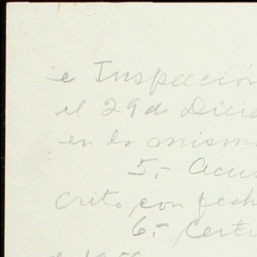 e Inspección
el 29 de Dicie
en la mism
5.- Acus
crito con fech
6.- Certi